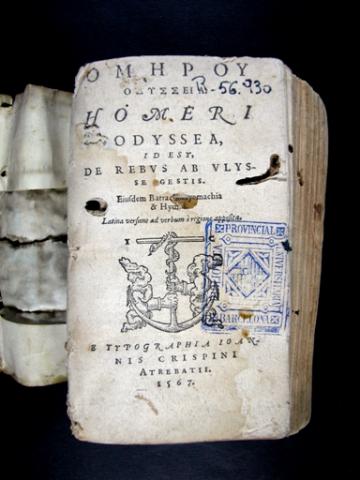 ΟΜΗΡΟΥ
ΟΔΥΣΣΕΙΑ
B-56.930
HOMERI
ODYSSEA,
ID EST,
DE REBVS AB VLYS-
SE GESTIS.
Eiusdem
& Hym
Latina versione ad verbum è regione apposita.
I C
PROVINCIAL
BARCELONA
E TYPOGRAPHIA IOAN-
NIS CRISPINI
ATREBATII.
1567.